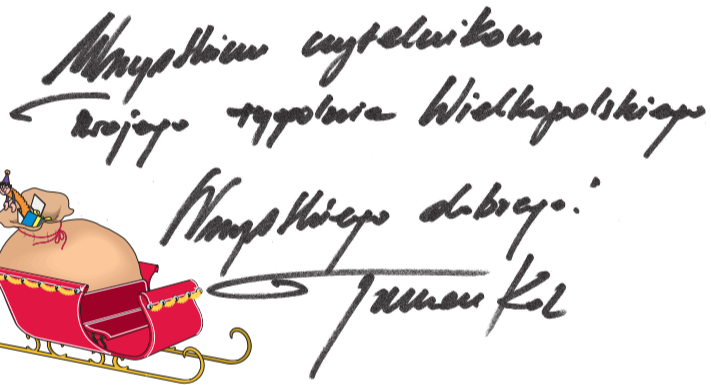 Wszystkim czytelnikom
Mojego tygodnia Wielkopolskiego
Wszystkiego dobrego!